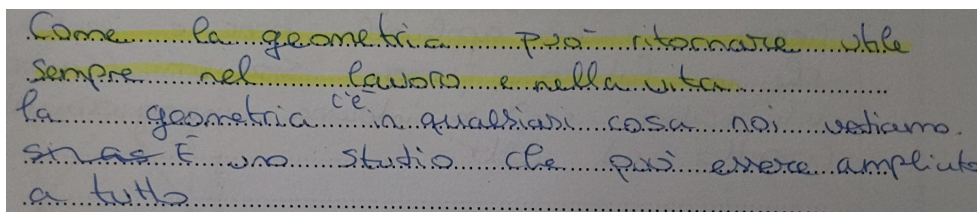 Come la geometria può ritornare utile
sempre nel lavoro e nella vita
la geometria c'è in qualsiasi cosa noi vediamo.
È uno studio che può essere ampliato
a tutto